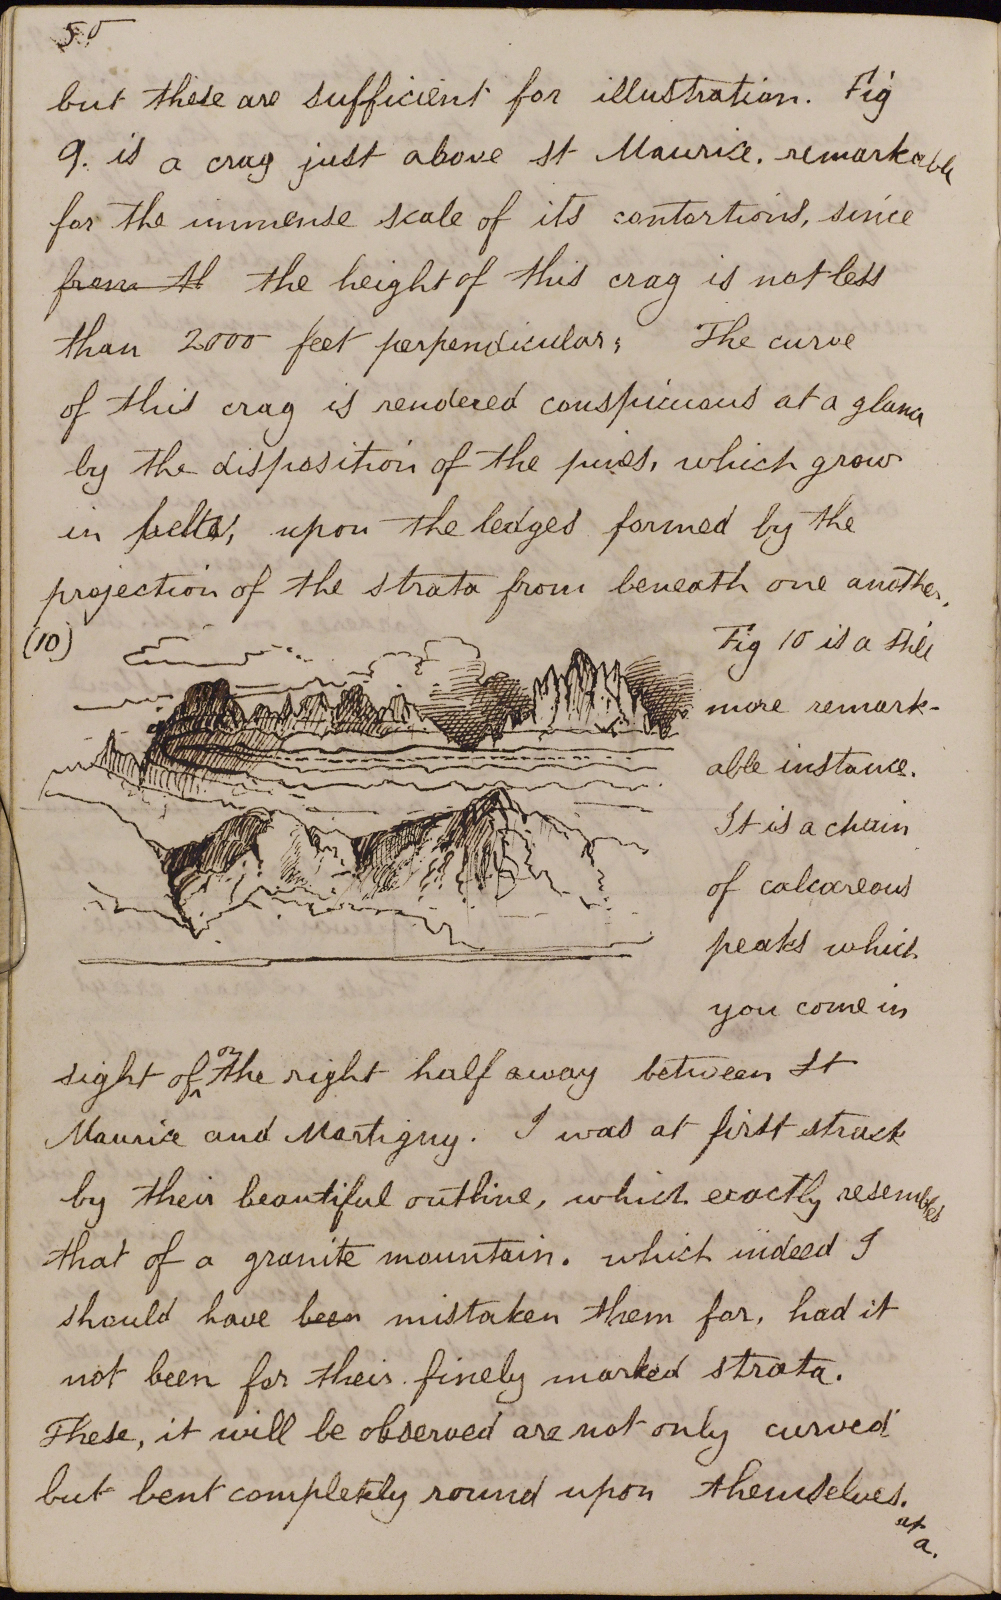 50
but these are sufficient for illustration. Fig
9. is a crag just above St Maurice. remarkable
for the immense scale of its contortions, since
from th the height of this crag is not less
than 2000 feet perpendicular; The curve
of this crag is rendered conspicuous at a glance
by the disposition of the pines, which grow
in belts, upon the ledges formed by the
projection of the strata from beneath one another.
(10)
Fig 10 is a still
more remark-
able instance.
It is a chain
of calcareous
peaks which
you come in
sight of on the right half away between St
Maurice and Martigny. I was at first struck
by their beautiful outline, which exactly resembles
that of a granite mountain. which indeed I
should have been mistaken them for, had it
not been for their finely marked strata.
These, it will be observed are not only curved
but bent completely round upon themselves.
at
a.